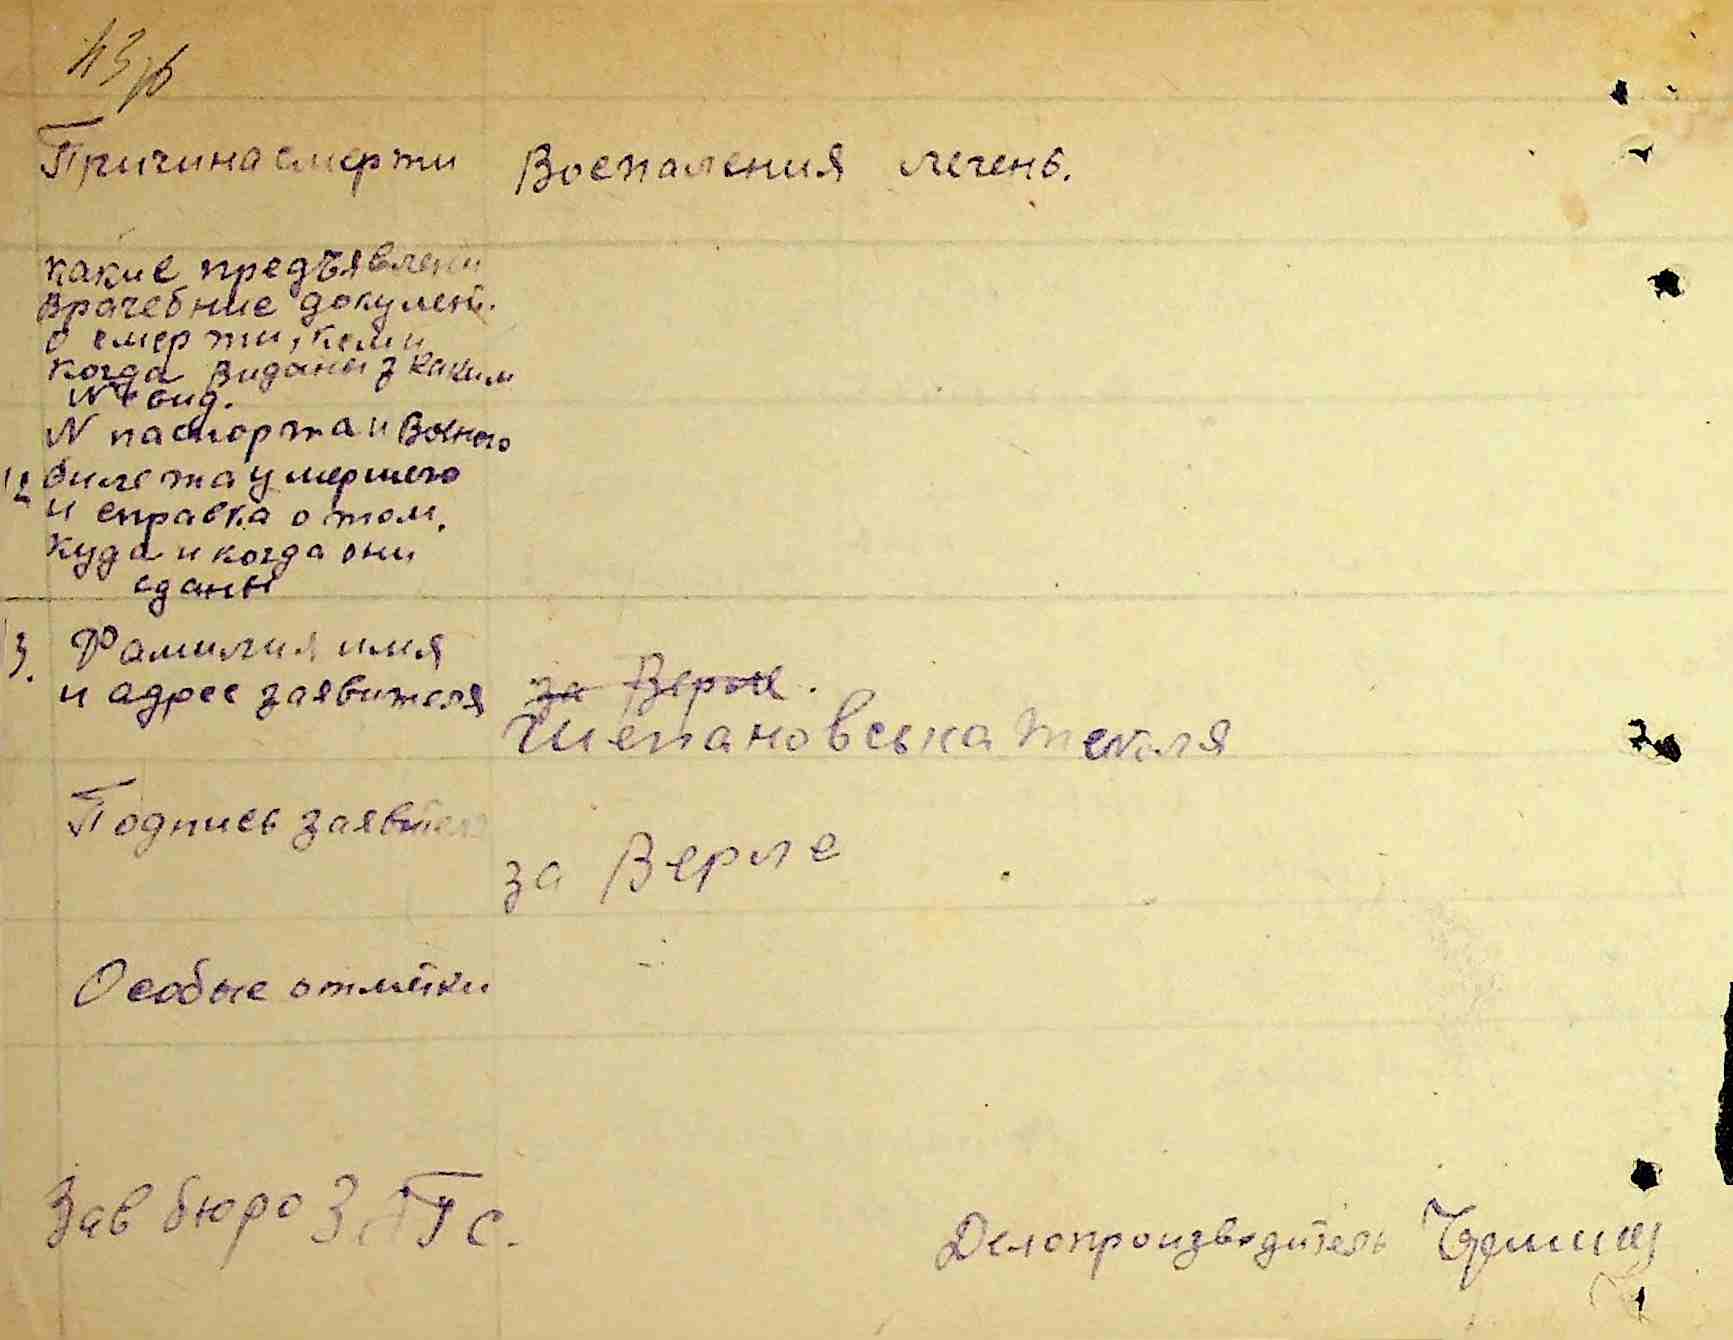 Причина смерти Воспаления легень.
какие предъявлени
врачебние документ.
о смерти, кем и
когда виданы з каким
№ вид.
N паспорта и военого
12 билета умершего
и справка о том.
куда и когда они
сданы
13. Фамилия имя
и адрес заявителя за Верле.
Шепановська Текля
Подпись заявителя
за Верле
Особые отметки
Зав бюро ЗАГС.
Делопроизводитель